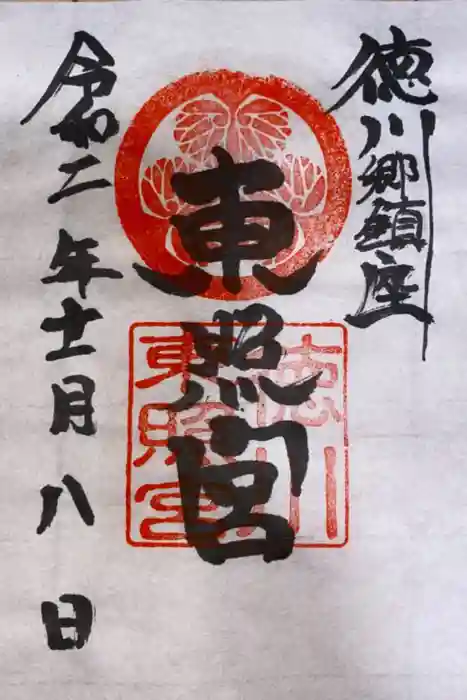 徳川郷鎮座
東照宮
令和二年十一月八日
徳川
東照宮